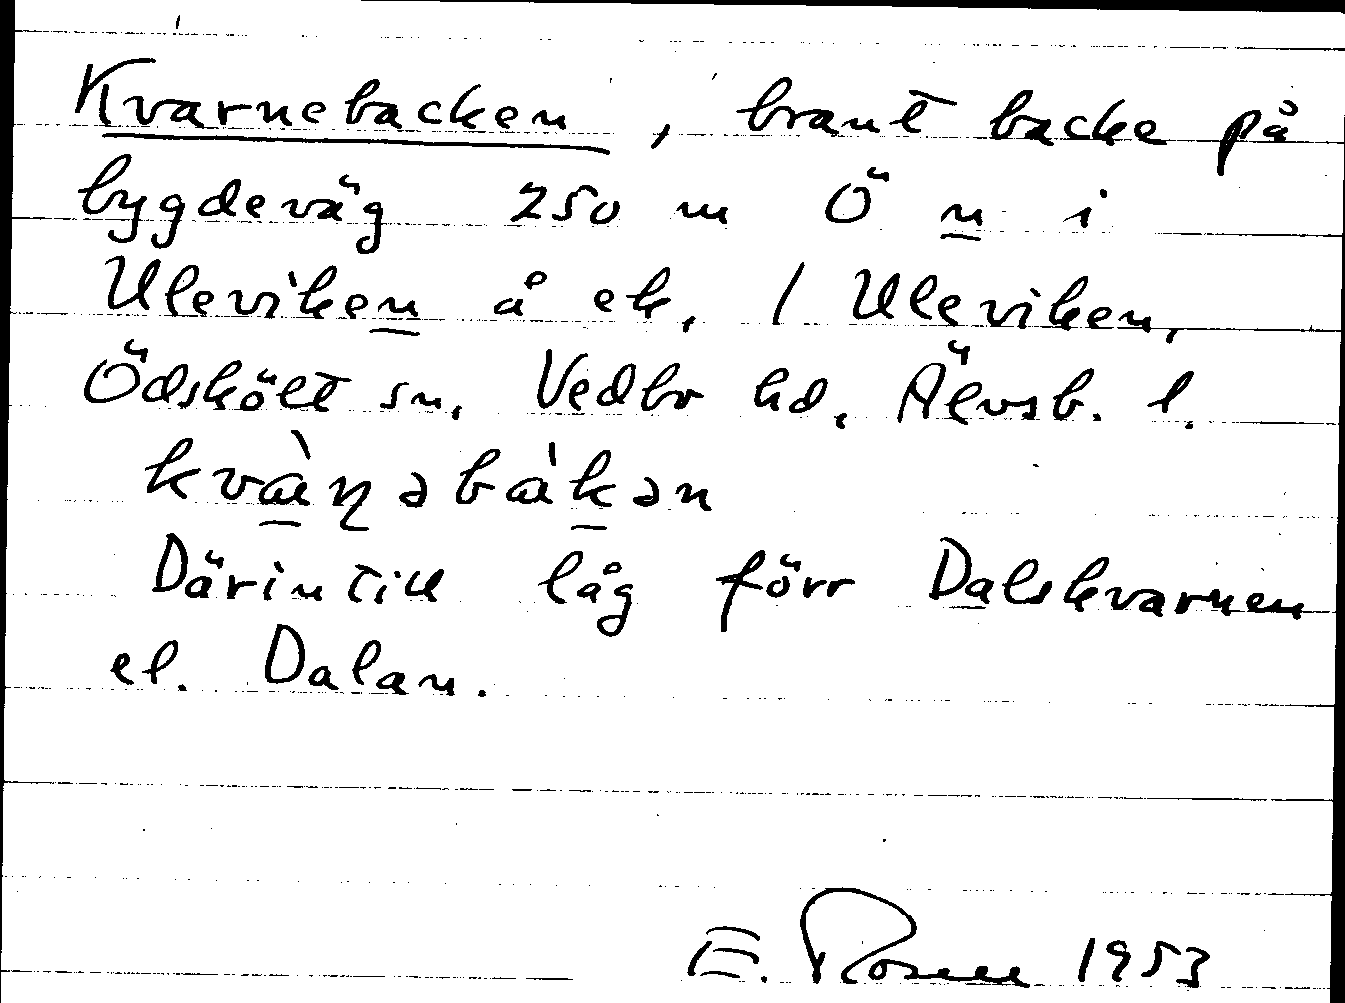 Kvarnebacken, brant backe på
bygdeväg 250 m Ö n i
Uleviken å ek. / Uleviken,
Ödskölt sn, Vedbo hd, Älvsb. l.
kvàɳəbàkən
Därintill låg förr Dalskvarnen
el. Dalan.
E. Rosell 1953